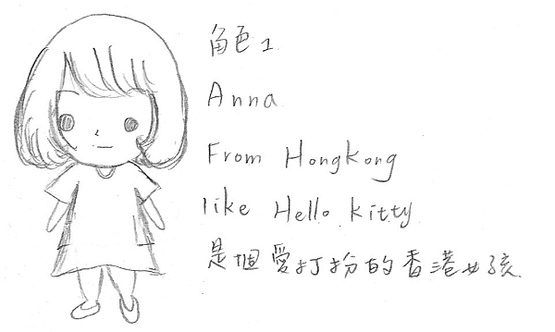 角色1
Anna
From Hongkong
like Hello kitty
是個愛打扮的香港女孩